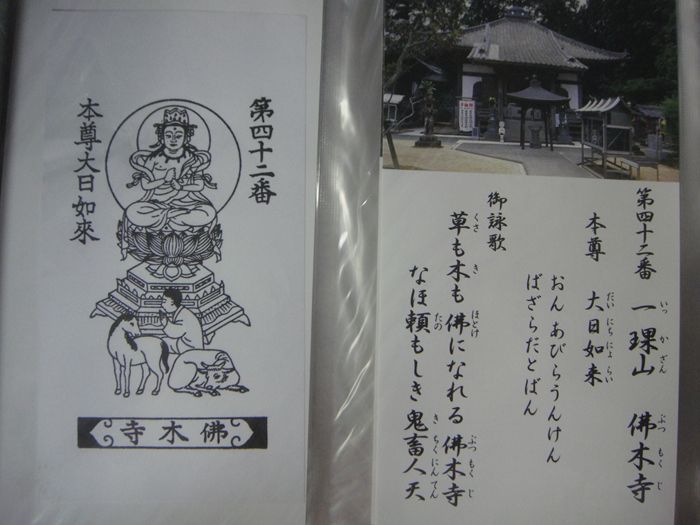 第四十二番
本尊大日如來
寺木佛
第四十二番 一𤩍山 佛木寺
いっ か ざん ぶつ もく じ
本尊 大日如来
だい にち にょ らい
おん あびらうんけん
ばざらだとばん
御詠歌
草も木も佛になれる佛木寺
くさ き ほとけ ぶつ もく じ
なほ頼もしき鬼畜人天
たの き ちく にん てん